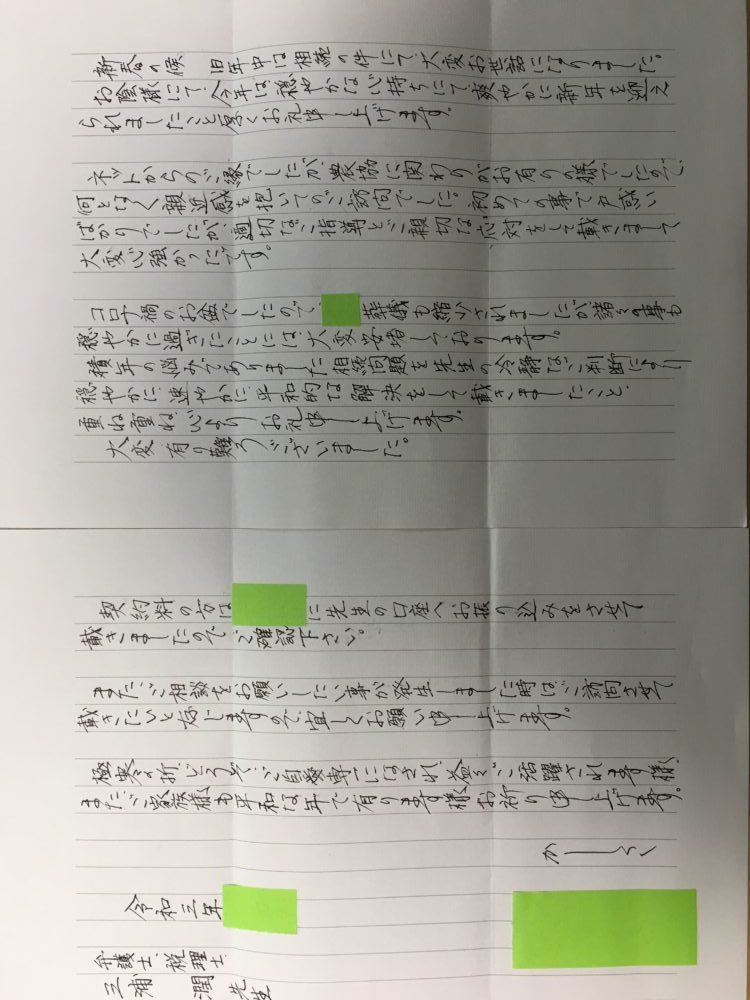 新春の候　旧年中は相続の件にて、大変お世話になりました。
お陰様にて、今年は、穏やかな心持ちにて、爽やかに新年を迎え
られましたこと厚くお礼申し上げます。
ネットからのご縁でしたが、農協に関わりがお有りの様でしたので、
何となく親近感を抱いてのご訪問でした。初めての事で戸惑い
ばかりでしたが、適切なご指導とご親切な応対をして戴きまして
大変心強かったです。
コロナ禍のお盆でしたので、葬儀も縮小されましたが諸々の事も
穏やかに過ぎたことには、大変安堵しております。
積年の悩みでありました相続問題を先生の冷静なご判断により
穏やかに、速やかに、平和的な解決をして戴きましたこと、
重ね重ね、心よりお礼申し上げます。
大変有り難うございました。
契約料の方は に先生の口座へお振り込みをさせて
戴きましたので、ご確認下さい。
また、ご相談をお願いしたい事が発生しました時は、ご訪問させて
戴きたいと存じますので、宜しくお願い申し上げます。
極寒の折、どうぞ、ご自愛専一になされ、益々ご活躍されます様、
また、ご家族様も平和な年で有ります様お祈り申し上げます。
かしこ
令和三年
弁護士、税理士
三浦　潤　先生